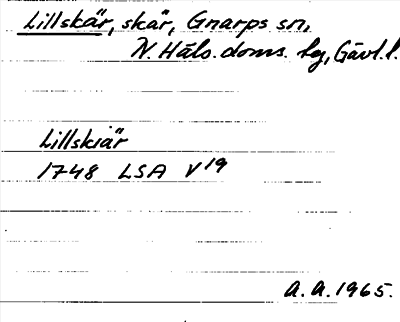 Lillskär, skär, Gnarps sn,
N. Häls. doms. lg, Gävl. l.
Lillskiär
1748 LSA V19
A. A. 1965.